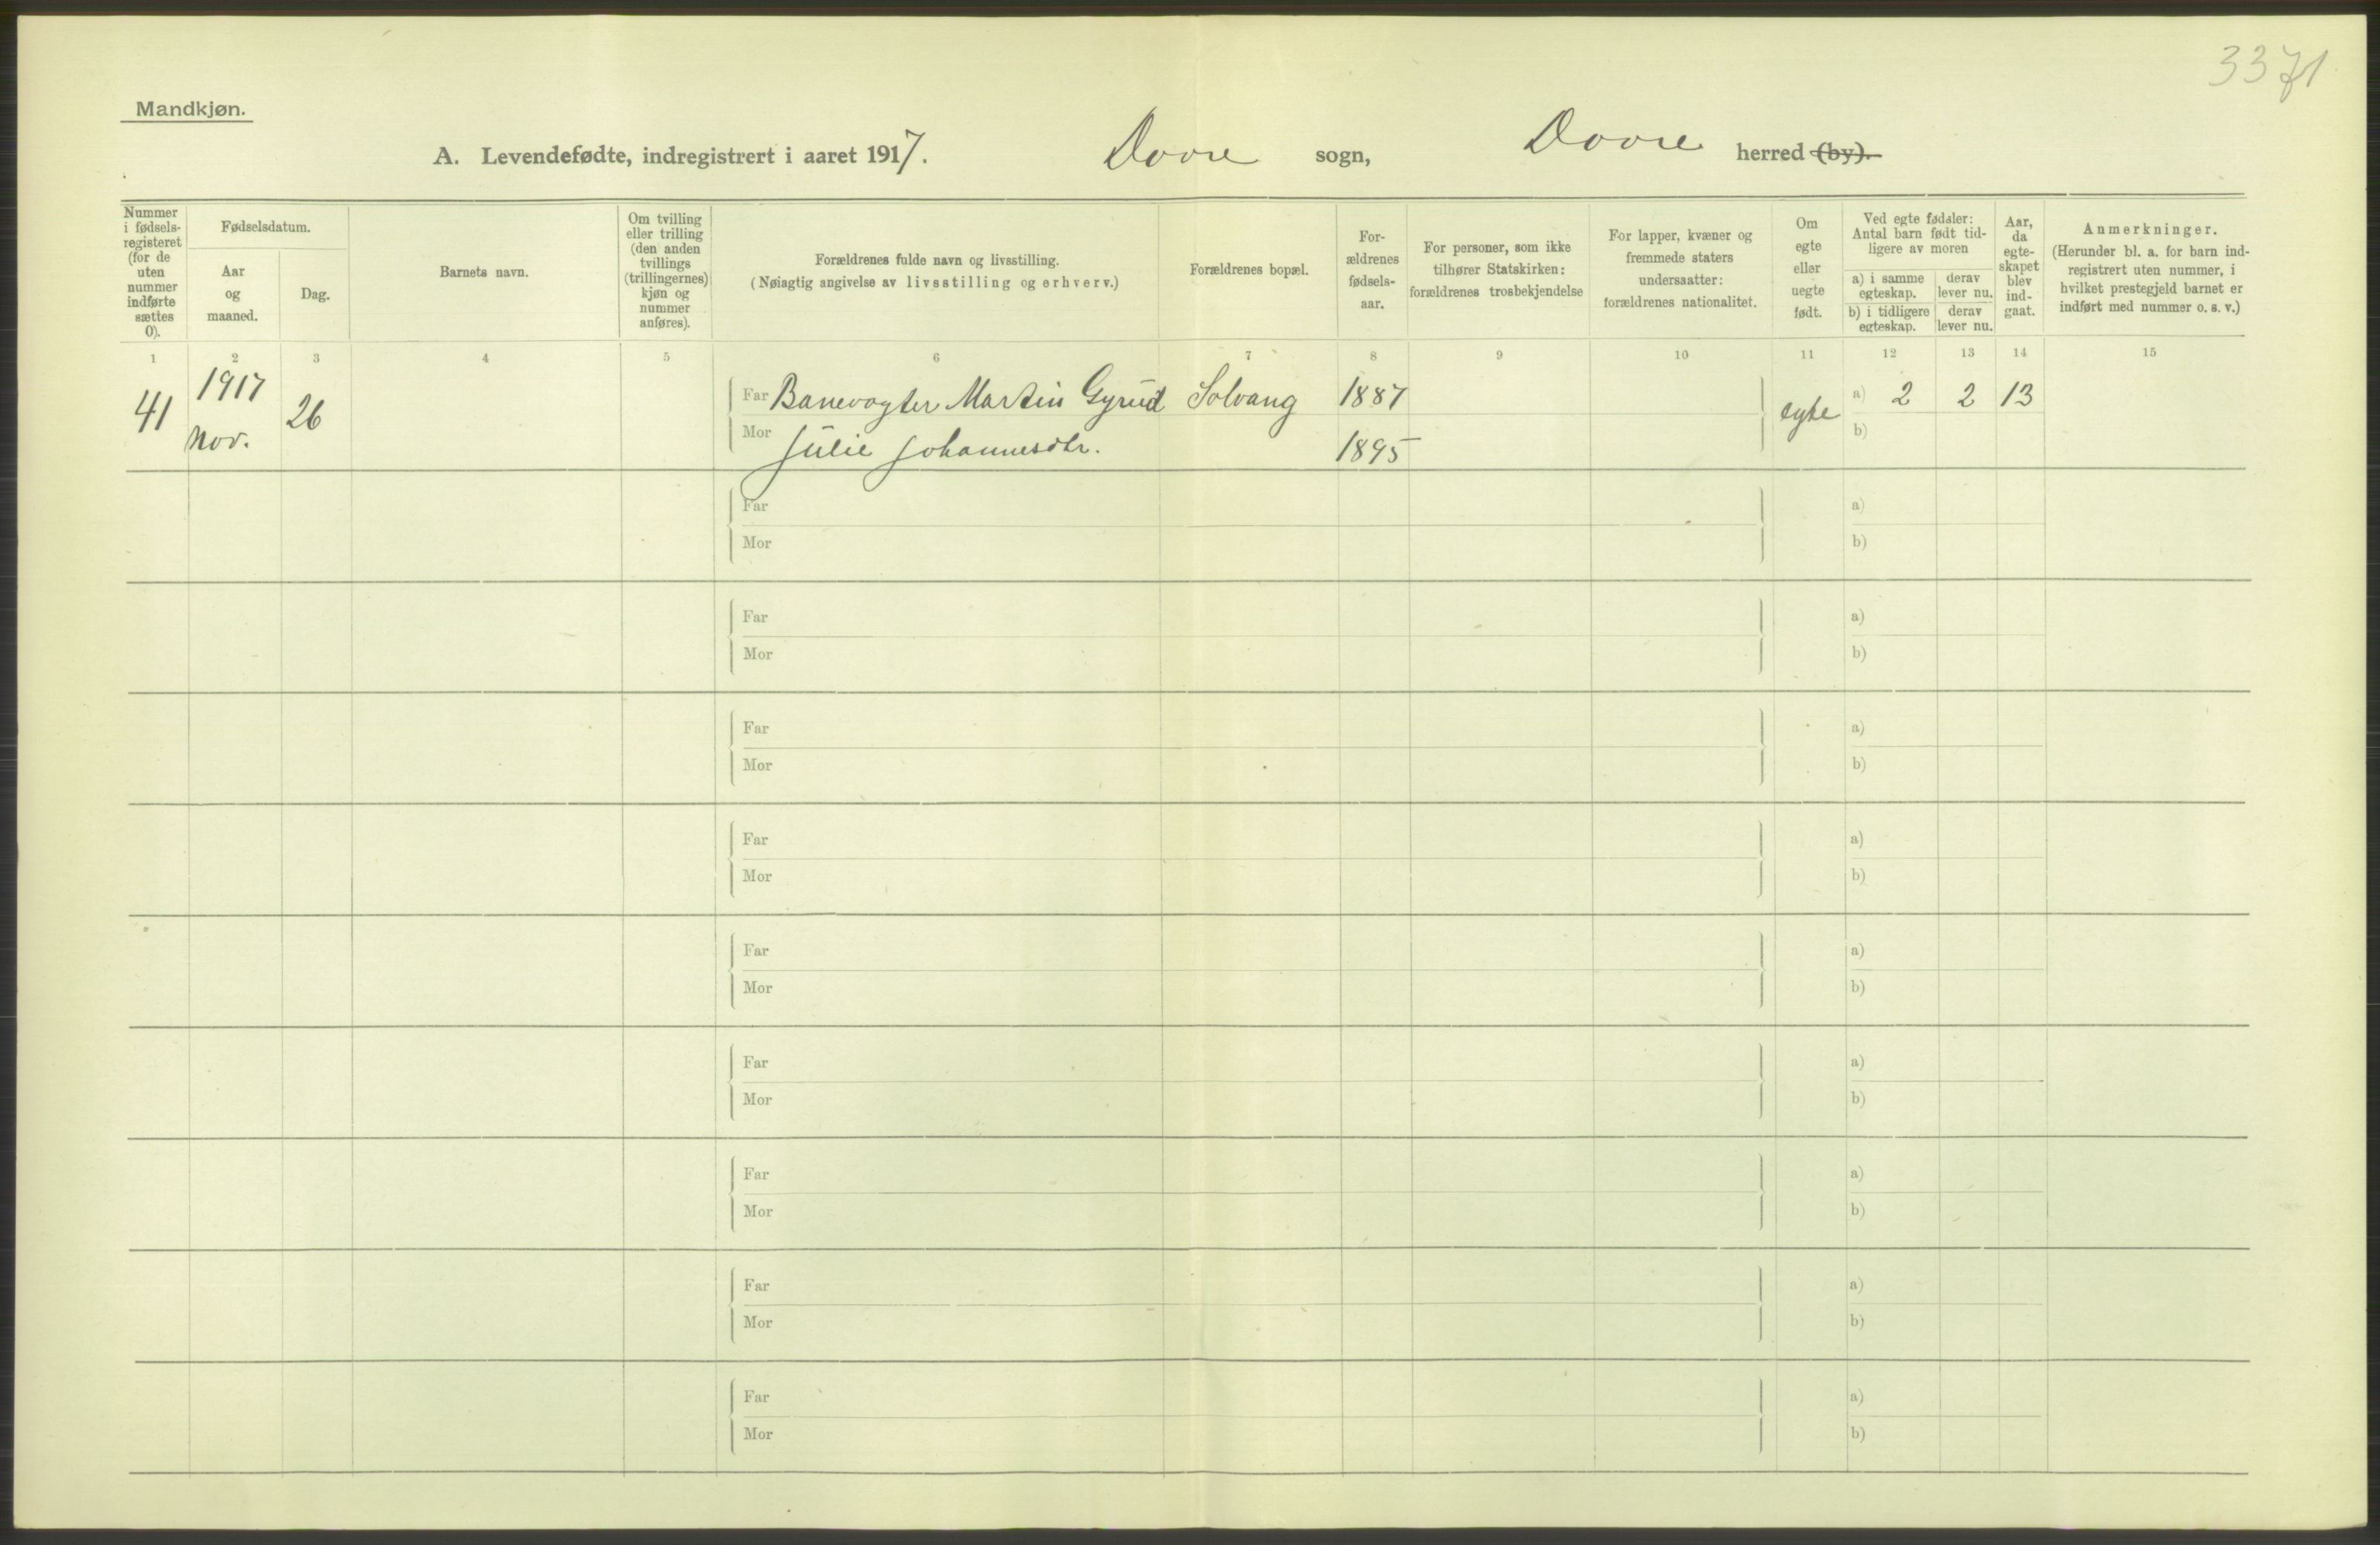 3371
Mandkjøn.
A. Levendefødte, indregistrert i aaret 1917. Dovre sogn, Dovre herred (by).
Nummer i fødsels-registeret (for de uten nummer indførte sættes 0).
Fødselsdatum.
Aar og maaned.
Dag.
Barnets navn.
Om tvilling eller trilling (den anden tvillings (trillingernes) kjøn og nummer anføres).
Forældrenes fulde navn og livsstilling.
(Nøiagtig angivelse av livsstilling og erhverv.)
Forældrenes bopæl.
For-ældrenes fødsels-aar.
For personer, som ikke tilhører Statskirken: forældrenes trosbekjendelse
For lapper, kvæner og fremmede staters undersaatter: forældrenes nationalitet.
Om egte eller uegte født.
Ved egte fødsler: Antal barn født tid-ligere av moren
a) i samme egteskap.
derav lever nu.
b) i tidligere egteskap.
derav lever nu.
Aar, da egte-skapet blev ind-gaat.
Anmerkninger.
(Herunder bl. a. for barn ind-registrert uten nummer, i hvilket prestegjeld barnet er indført med nummer o. s. v.)
1 2 3 4 5 6 7 8 9 10 11 12 13 14 15
41 1917 Nov. 26 Far Banevogter Martin Gyrud Solvang 1887 egte a) 2 2 13
Mor Julie Johannesdtr. 1895 b)
Far a)
Mor b)
Far a)
Mor b)
Far a)
Mor b)
Far a)
Mor b)
Far a)
Mor b)
Far a)
Mor b)
Far a)
Mor b)
Far a)
Mor b)
Far a)
Mor b)